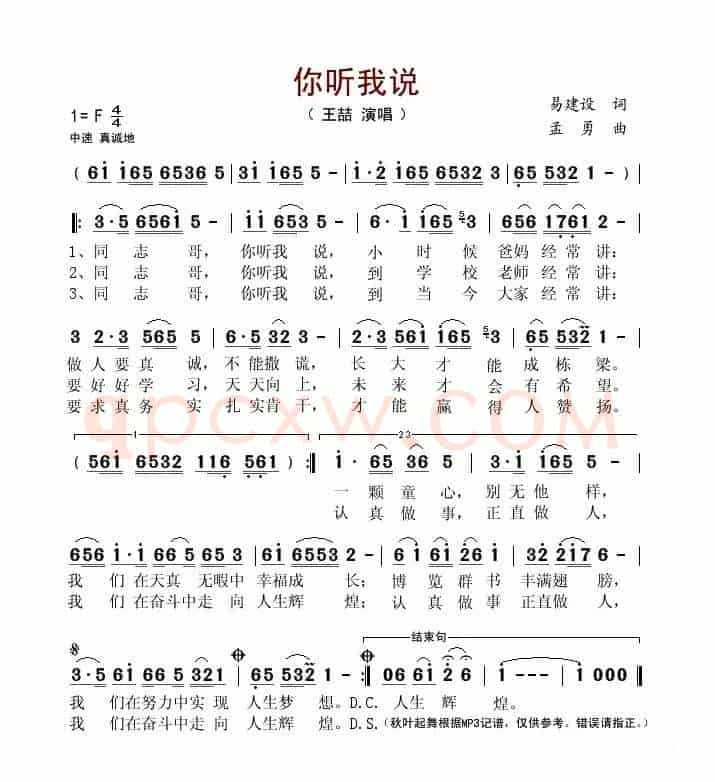 你听我说
1= F 4/4
（ 王喆 演唱 ）
易建设 词
中速 真诚地
孟 勇 曲
( 61 165 6536 5 | 31 165 5 - | 1·2 165 6532 3 | 65 532 1 - )
3·5 6561 5 - | 11 653 5 - | 6·1 165 5 3 | 656 1761 2 -
1、同 志 哥，你听我 说，小 时 候 爸妈 经常 讲：
2、同 志 哥，你听我 说，到 学 校 老师 经常 讲：
3、同 志 哥，你听我 说，到 当 今 大家 经常 讲：
3 2·3 565 5 | 6·5 32 3 - | 2·3 51 165 5 3 | 65 532 1 -
做人要真 诚，不能撒 谎，长大才 能成栋 梁。
要好好学 习，天天向 上，未来才 会有希 望。
要求真务 实扎实肯 干，才能赢 得人赞 扬。
1
23
( 561 6532 116 561 ) :| 1· 65 36 5 | 3·1 165 5 -
一颗童 心，别无他 样，
认真做 事，正直做 人，
656 1·1 66 5 65 3 | 61 6553 2 - | 61 61 26 1 | 32 2176 -
我 们在天真 无暇中 幸福成 长；博览群 书丰满翅 膀，
我 们在奋斗中走 向 人生辉 煌；认真做 事正直做 人，
结束句
3·5 61 66 5 321 | 65 532 1 - :| 06 61 2 6 | 1 - - - | 1 000
我 们在努力中实 现 人生梦 想。D.C. 人生 辉 煌。
我 们在奋斗中走 向 人生辉 煌。D.S.(秋叶起舞根据MP3记谱，仅供参考。错误请指正。)
qpcxw.COM